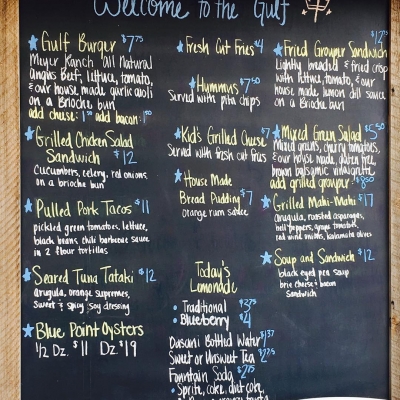 Welcome to the Gulf
★ Gulf Burger $7.75
Meyer Ranch all Natural
Angus Beef, lettuce, tomato,
& our house made garlic aioli
on a Brioche bun
add cheese: 1.50 add bacon: 1.50
★ Grilled Chicken Salad
Sandwich $12
Cucumbers, celery, red onions
on a brioche bun
★ Pulled Pork Tacos $11
pickled green tomatoes, lettuce,
black beans, chili barbecue sauce
in 2 flour tortillas
★ Seared Tuna Tataki $12
arugula, orange supremes,
sweet & spicy soy dressing
★ Blue Point Oysters
1/2 Dz. $11 Dz $19
★ Fresh Cut Fries $4
★ Hummus $7.50
Served with pita chips
★ Kid's Grilled Cheese $7
Served with fresh cut fries
★ House Made
Bread Pudding $7
orange rum sauce
Today's
Lemonade
• Traditional $3.75
• Blueberry $4
Dasani Bottled Water $1.37
Sweet or Unsweet Tea $2.75
Fountain Soda $2.75
• Sprite, coke, diet coke
★ Fried Grouper Sandwich
Lightly breaded & fried crisp
with lettuce, tomato, & our
house made lemon dill sauce
on a Brioche bun
★ Mixed Green Salad $5.50
Mixed greens, cherry tomatoes,
& our house made, gluten free,
brown balsamic vinaigrette
add grilled grouper! $8.50
★ Grilled Mahi-Mahi $17
arugula, roasted asparagus,
bell peppers, grape tomatoes,
red wine onions, kalamata olives
★ Soup and Sandwich $12
black eyed pea soup
brie cheese & bacon
Sandwich